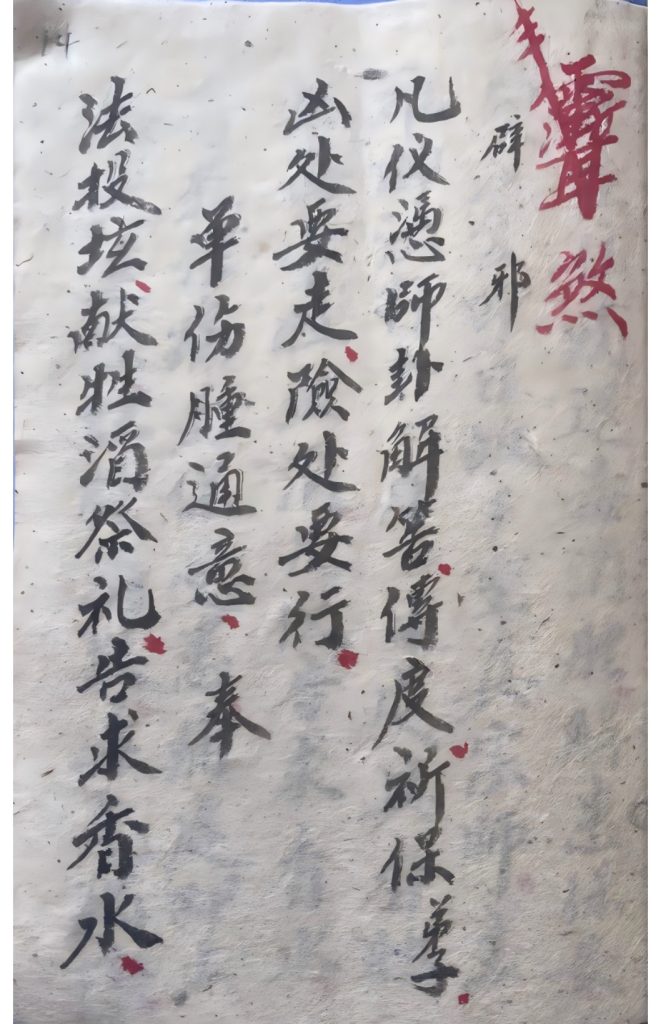 煞
辟邪
凡仪憑師卦解答傳度祈保弟子
凶处要走險处要行
单伤腫通意 奉
法投坛献牲酒祭礼告求香水
14